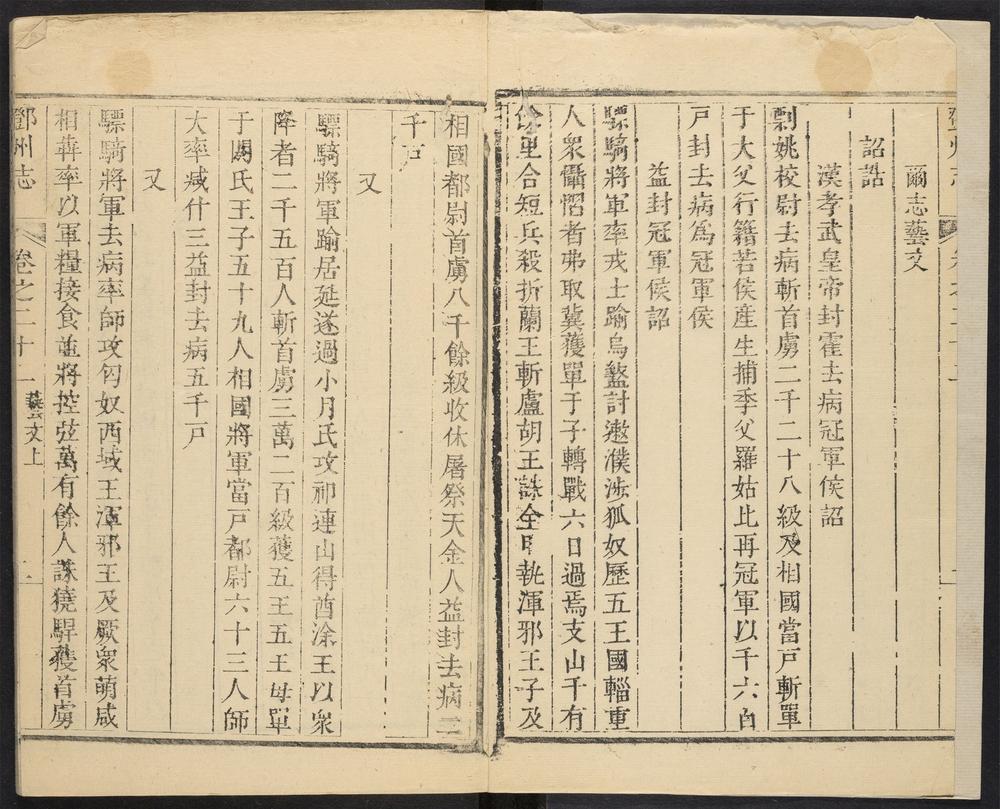 爾志藝文
詔誥
漢孝武皇帝封霍去病冠軍侯詔
剽姚校尉去病斬首虜二千二十八級及相國當戶斬單
于大父行籍若侯產生捕季父羅姑比再冠軍以千六百
戶封去病爲冠軍侯
益封冠軍侯詔
驃騎將軍率戎士踰烏盭討遫濮涉狐奴歷五王國輜重
人衆懾慴者弗取冀獲單于子轉戰六日過焉支山千有
餘里合短兵殺折蘭王斬盧胡王誅全甲執渾邪王子及
相國都尉首虜八千餘級收休屠祭天金人益封去病二
千戶
又
驃騎將軍踰居延遂過小月氏攻祁連山得酋涂王以衆
降者二千五百人斬首虜三萬二百級獲五王五王母單
于閼氏王子五十九人相國將軍當戶都尉六十三人師
大率减什三益封去病五千戶
又
驃騎將軍去病率師攻匈奴西域王渾邪王及厥衆萌咸
相犇率以軍糧接食並將控弦萬有餘人誅獟駻獲首虜
鄧州志
卷之二十二
藝文上
二